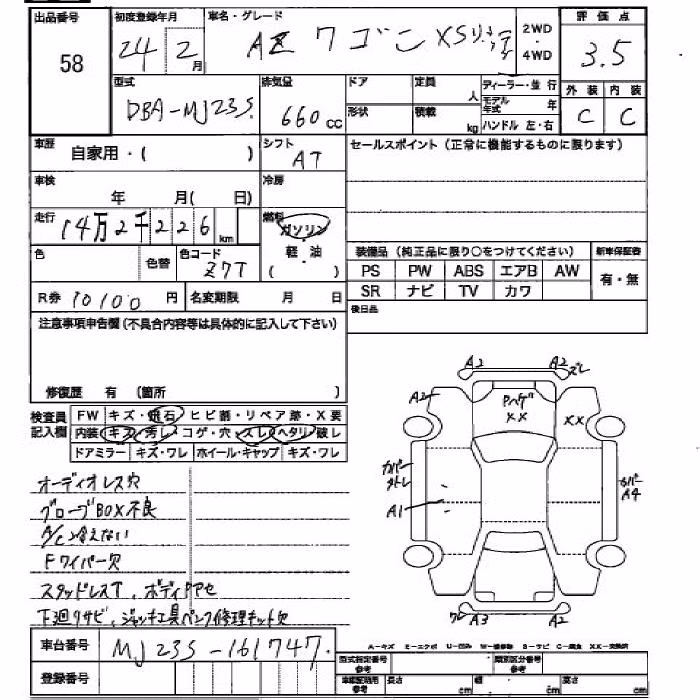 出品番号 初度登録年月 車名・グレード 2WD ・ 4WD 評価点
58 24 2月 AZワゴン XSリミテッド 3.5
型式 排気量 ドア 定員 人 ディーラー・並行 外装 内装
DBA-MJ23S 660cc 形状 積載 kg モデル年式 年 C C
ハンドル 左・右
車歴 自家用・( ) シフト AT セールスポイント(正常に機能するものに限ります)
車検 年 月( 日) 冷房
走行 14万2千226km 燃料 ガソリン・軽油( )
色 色替 色コード Z7T 装備品(純正品に限り○をつけてください) 新車保証書
PS PW ABS エアB AW 有・無
R券 10100円 名変期限 月 日 SR ナビ TV カワ
注意事項申告欄(不具合内容等は具体的に記入して下さい) 後日品
修復歴 有 (箇所 )
検査員記入欄 FW キズ・飛石・ヒビ割・リペア跡・X要
内装 キズ・汚レ・コゲ・穴・スレ・ヘタリ・破レ
ドアミラー キズ・ワレ ホイール・キャップ キズ・ワレ
オーディオレス穴
グローブBOX不良
A/C冷えない
Fワイパー欠
スタッドレスT、ボディアセ
下廻りサビ、ジャッキ工具パンク修理キット欠
A2 A2 ズレ
A2 Pハゲ XX XX
カバー カバー A4
A1
ワレ A3 A2
A-キズ ミ-エクボ U-凹み W-補修跡 S-サビ C-腐食 XX-交換済
車台番号 MJ23S-161747
登録番号
型式指定番号 参考 類別区分番号 参考
車検証時用 参考 長さ cm 幅 cm 高さ cm